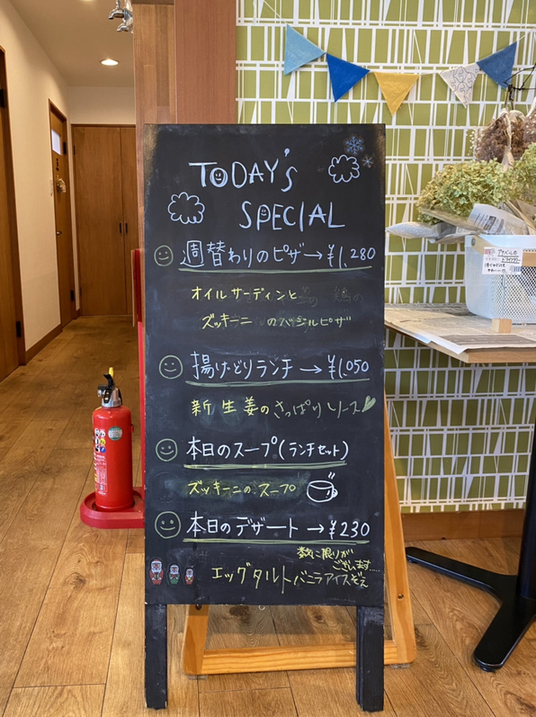 TODAY'S
SPECIAL
週替わりのピザ→¥1,280
オイルサーディンと
ズッキーニ のバジルピザ
揚げどりランチ→¥1,050
新生姜のさっぱりソース
本日のスープ(ランチセット)
ズッキーニのスープ
本日のデザート→¥230
数に限りが
ございます…
エッグタルトバニラアイス添え